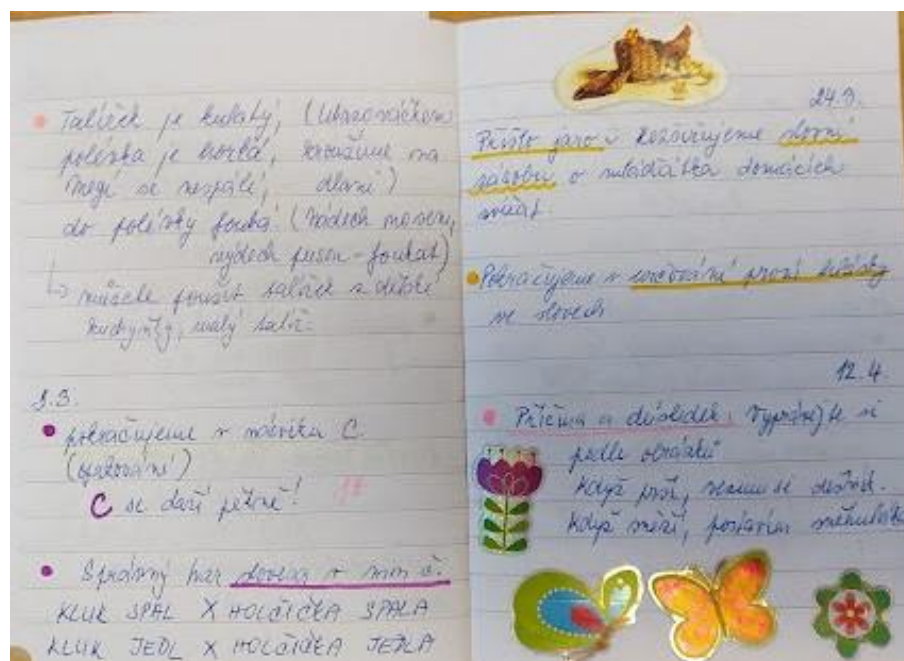 Talíček je kulatý, (Ukazováčkem
polévka je horká, kroužíme na
se nespálí, dlani)
do polévky fouká. (Nádech nosem,
výdech pusou - foukat)
↳ můžete použít talíček z dětské
kuchyňky, malý talíř.
9.3.
pokračujeme v nácviku C.
(opakování)
C se daří pěkně!
Správný tvar slovesa v min. č.
KLUK SPAL X HOLČIČKA SPALA
KLUK JEDL X HOLČIČKA JEDLA
24.3.
Přišlo jaro - Rozšiřujeme slovní
zásobu o mláďátka domácích
zvířat.
Pokračujeme v určování první hlásky
ve slovech
12.4.
Příčina a důsledek: Vyprávějte si
podle obrázků
Když prší, vezmu se deštník.
Když sněží, postavím sněhuláka